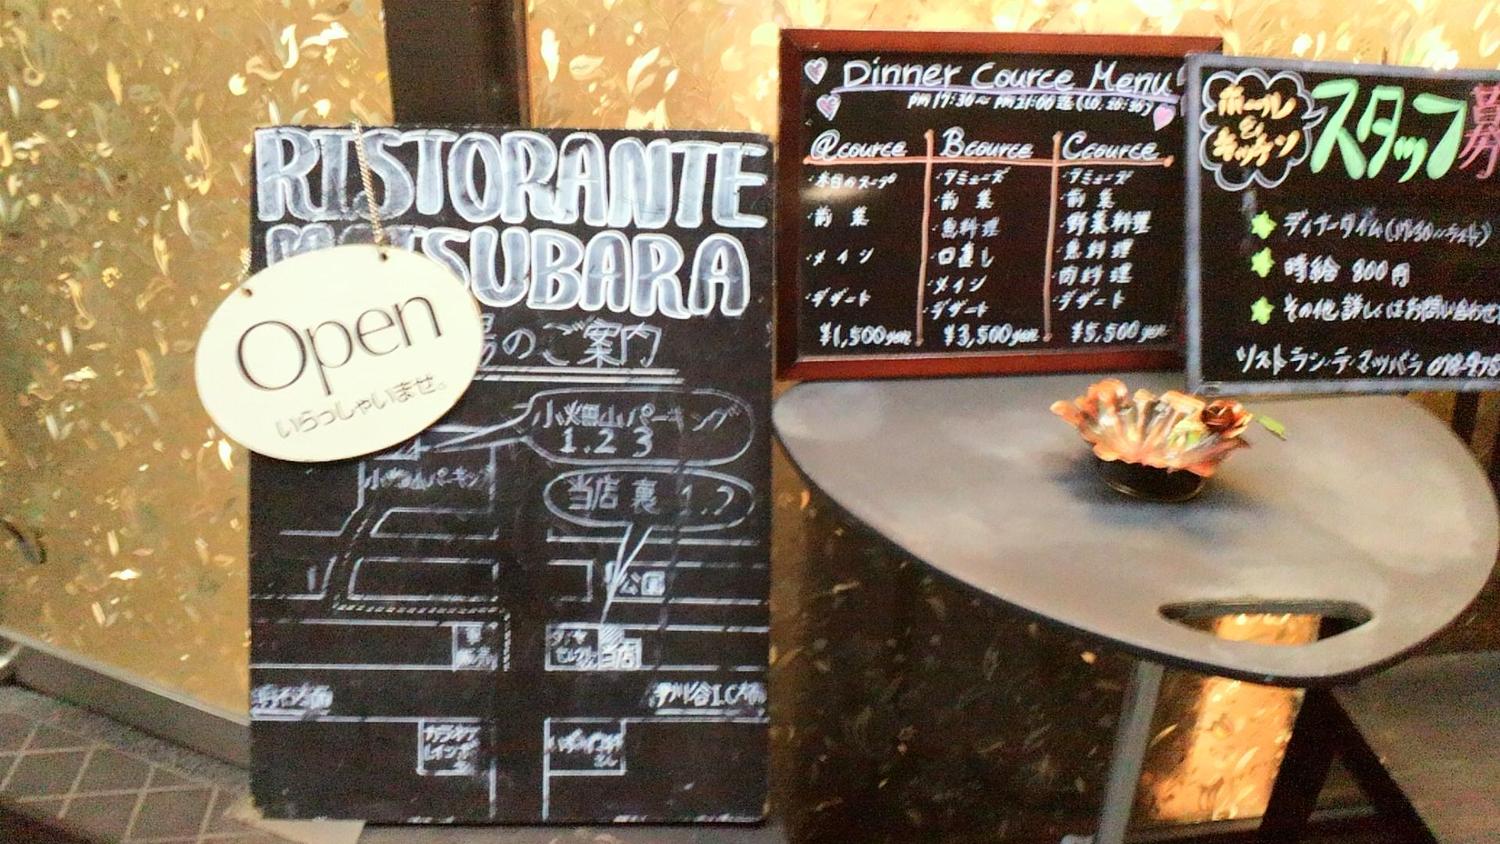 RISTORANTE
MATSUBARA
Open
いらっしゃいませ。
場のご案内
小畑山パーキング
1.2.3
パーキング
当店裏 1.2
公園
当店
カラオケ
Dinner Cource Menu
PM 17:30~ PM 21:00
@cource
・本日のスープ
・前菜
・メイン
・デザート
¥1,500yen
Bcource
・アミューズ
・前菜
・魚料理
・口直し
・メイン
・デザート
¥3,500yen
Ccource
・アミューズ
・前菜
・野菜料理
・魚料理
・肉料理
・デザート
¥5,500yen
ホール
&
キッチン
スタッフ募
ディナータイム(17:30〜ラスト)
時給 800円
その他詳しくはお問い合わせ
リストランテ・マツバラ 078-975